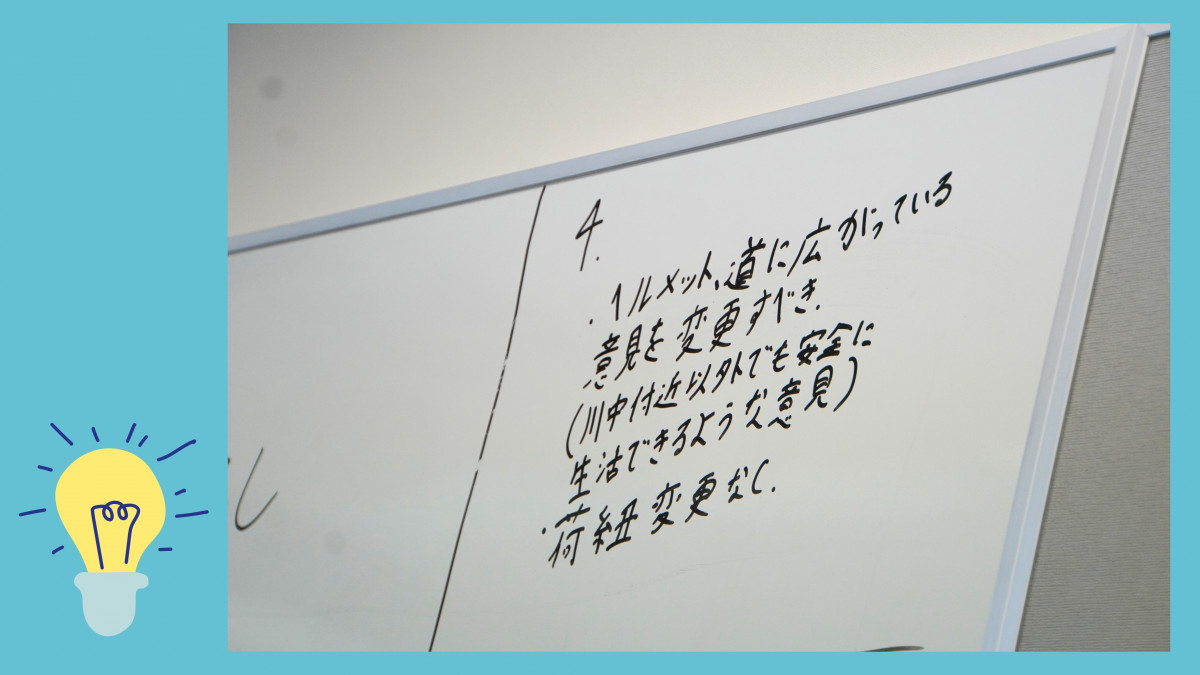 4.
・ヘルメット、道に広がっている
意見を変更すべき.
(川中付近以外でも安全に
生活できるような意見)
・荷紐変更なし.